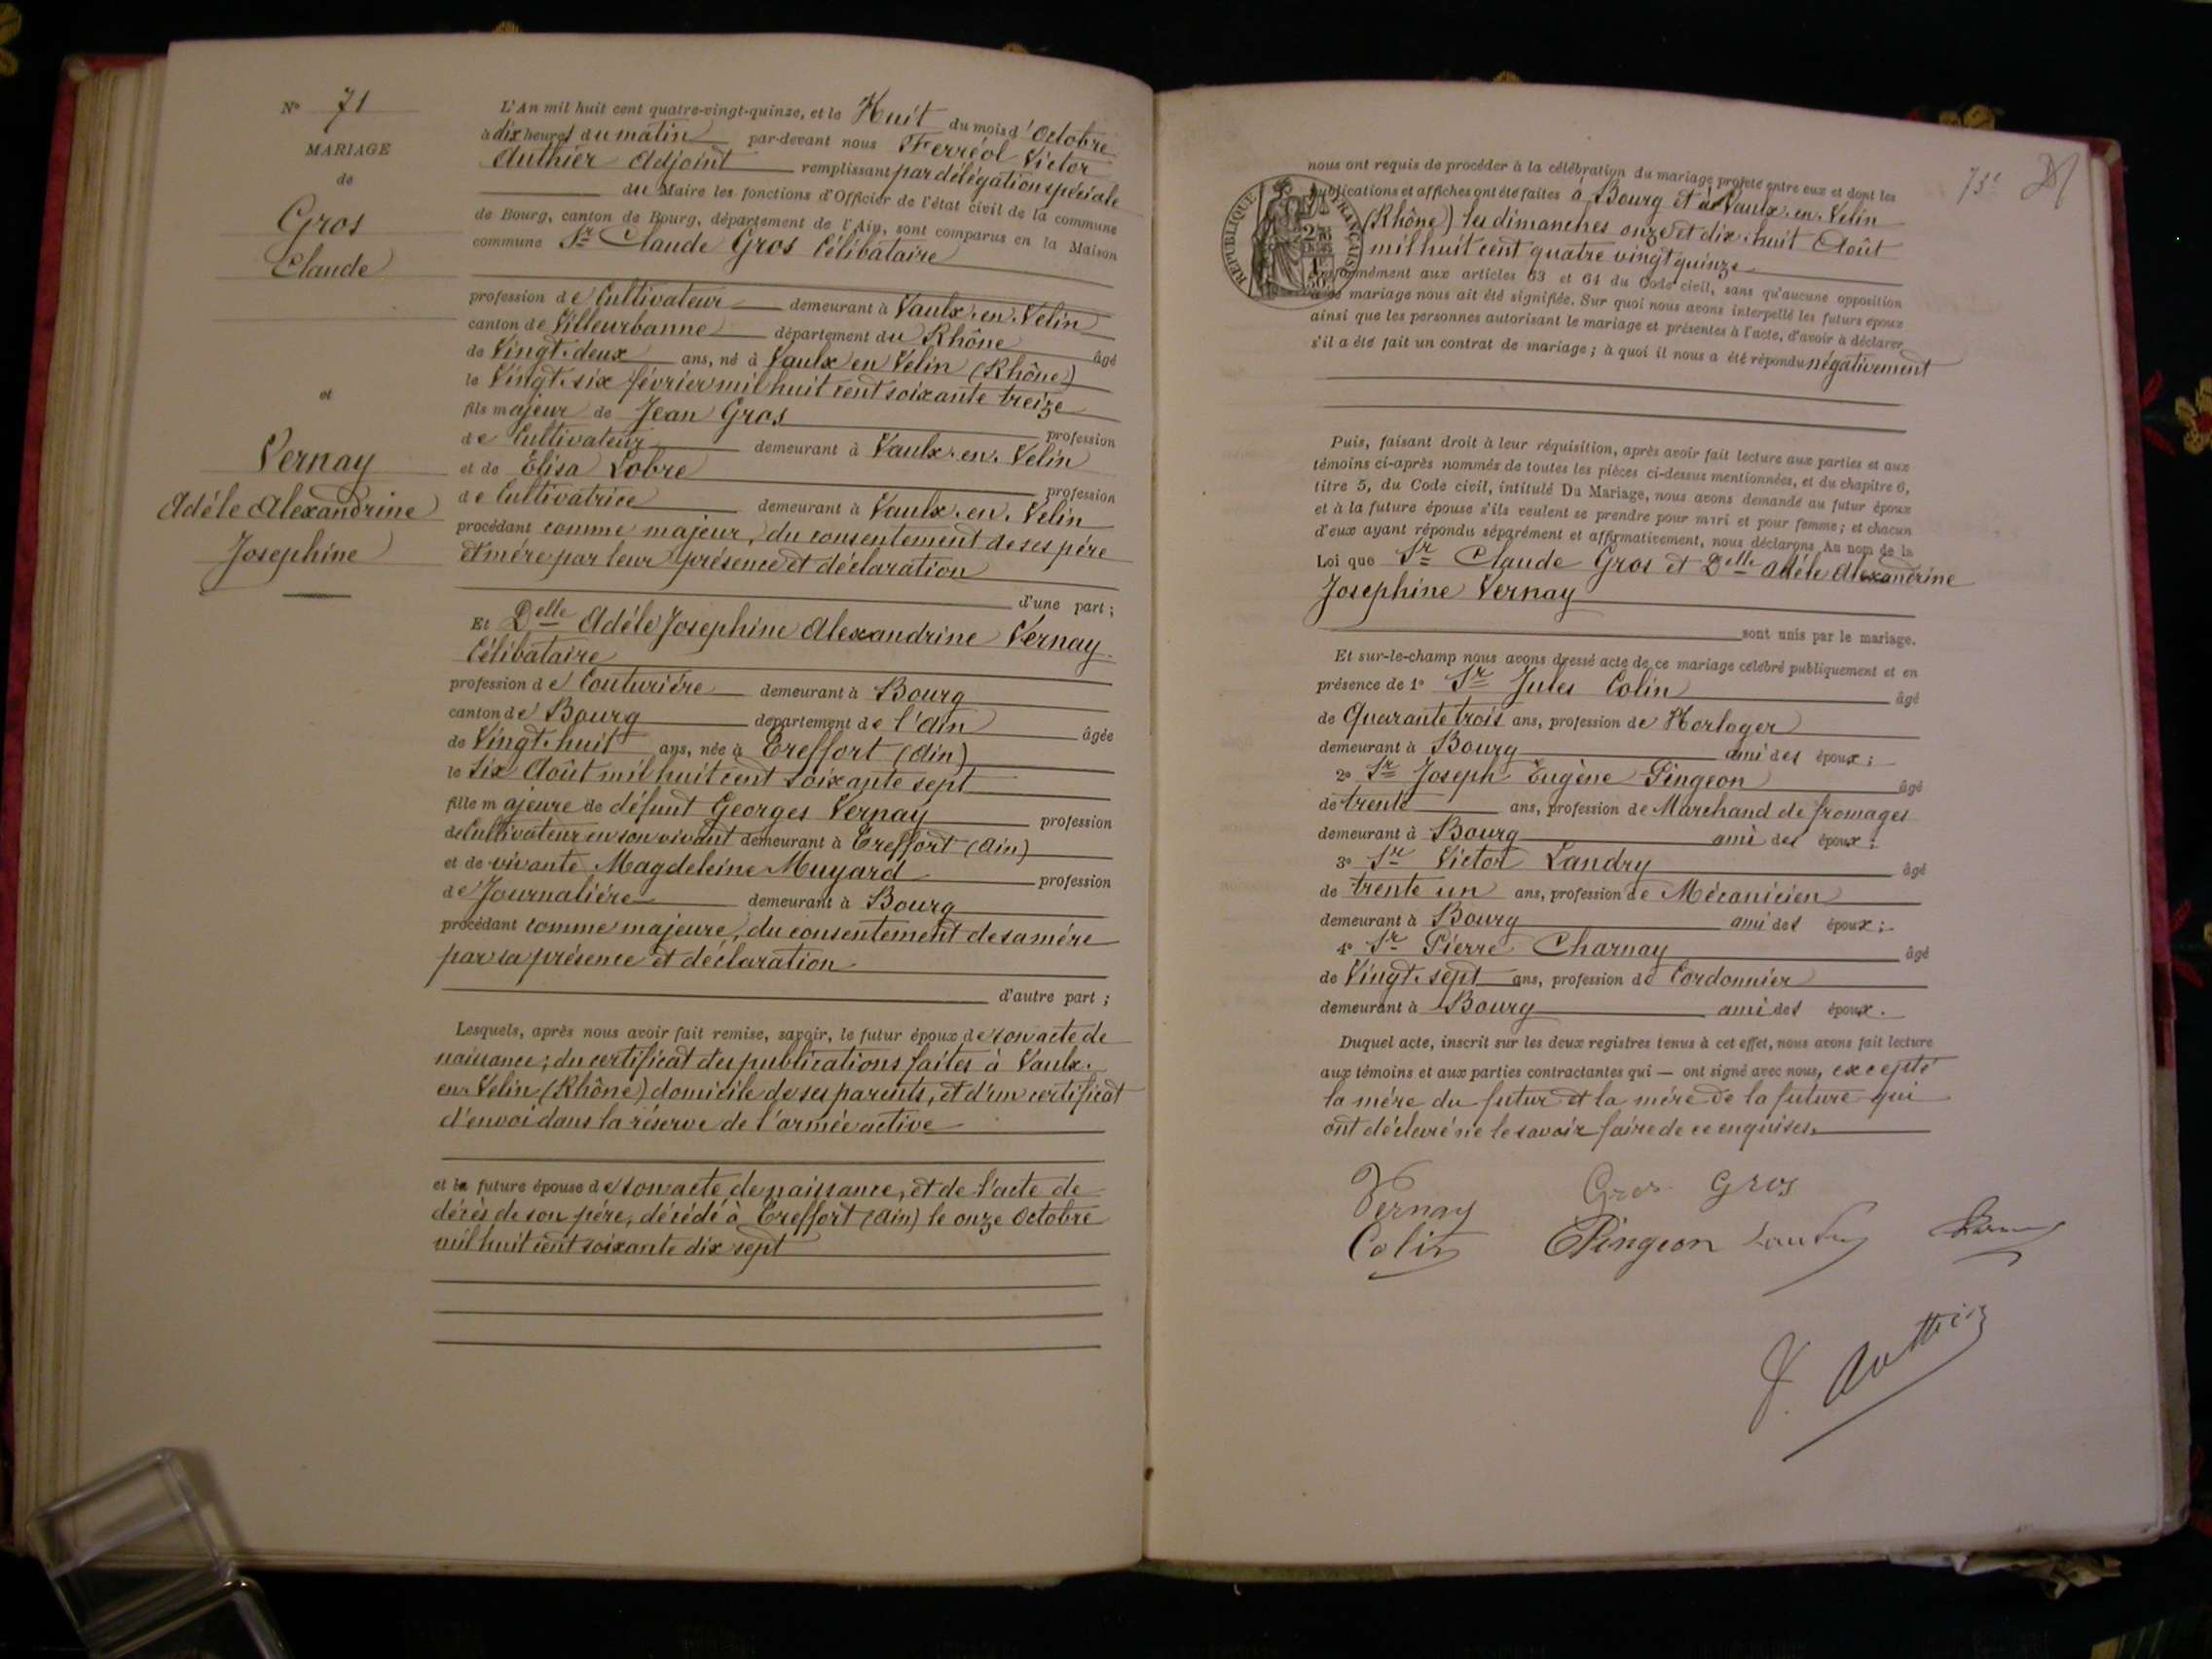 N° 71
MARIAGE
de
Gros
Claude
et
Vernay
Adéle Alexandrine
Josephine
L'An mil huit cent quatre-vingt-quinze, et le Huit du mois d'Octobre
à dix heures du matin par-devant nous Ferréol Victor
Authier Adjoint remplissant par délégation spéciale
du Maire les fonctions d'Officier de l'état civil de la commune
de Bourg, canton de Bourg, département de l'Ain, sont comparus en la Maison
commune Sr Claude Gros Célibataire
profession de Cultivateur demeurant à Vaulx-en-Velin
canton de Villeurbanne département du Rhône âgé
de Vingt-deux ans, né à Vaulx en Velin (Rhône)
le Vingt-six février mil huit cent soixante treize
fils majeur de Jean Gros profession
de Cultivateur demeurant à Vaulx-en-Velin
et de Elisa Lobre profession
de Cultivatrice demeurant à Vaulx-en-Velin
procédant comme majeur, du consentement de ses pére
et mére par leur présence et déclaration
d'une part ;
Et Delle Adéle Josephine Alexandrine Vernay
Célibataire
profession de Couturiére demeurant à Bourg
canton de Bourg département de l'Ain âgée
de Vingt-huit ans, née à Treffort (Ain)
le Six Août mil huit cent soixante sept
fille majeure de défunt Georges Vernay profession
de Cultivateur en son vivant demeurant à Treffort (Ain)
et de vivante Magdeleine Muyard profession
de Journaliére demeurant à Bourg
procédant comme majeure, du consentement de sa mére
par sa présence et déclaration
d'autre part ;
Lesquels, après nous avoir fait remise, savoir, le futur époux de son acte de
naissance ; du certificat des publications faites à Vaulx-
en-Velin (Rhône) domicile de ses parents, et d'un certificat
d'envoi dans la réserve de l'armée active
et la future épouse de son acte de naissance, et de l'acte de
décès de son pére, décédé à Treffort (Ain) le onze Octobre
mil huit cent soixante dix sept
73e
nous ont requis de procéder à la célébration du mariage projeté entre eux et dont les
publications et affiches ont été faites à Bourg et à Vaulx-en-Velin
(Rhône) les dimanches onze et dix-huit Août
mil huit cent quatre vingt quinze
conformément aux articles 63 et 64 du Code civil, sans qu'aucune opposition
à ce mariage nous ait été signifiée. Sur quoi nous avons interpellé les futurs époux
ainsi que les personnes autorisant le mariage et présentes à l'acte, d'avoir à déclarer
s'il a été fait un contrat de mariage ; à quoi il nous a été répondu négativement
REPUBLIQUE FRANÇAISE
Puis, faisant droit à leur réquisition, après avoir fait lecture aux parties et aux
témoins ci-après nommés de toutes les pièces ci-dessus mentionnées, et du chapitre 6,
titre 5, du Code civil, intitulé Du Mariage, nous avons demandé au futur époux
et à la future épouse s'ils veulent se prendre pour mari et pour femme ; et chacun
d'eux ayant répondu séparément et affirmativement, nous déclarons Au nom de la
Loi que Sr Claude Gros et Delle Adéle Alexandrine
Josephine Vernay
sont unis par le mariage.
Et sur-le-champ nous avons dressé acte de ce mariage célébré publiquement et en
présence de 1° Sr Jules Colin âgé
de Quarante trois ans, profession de Horloger
demeurant à Bourg ami des époux ;
2° Sr Joseph Eugène Pingeon âgé
de trente ans, profession de Marchand de fromages
demeurant à Bourg ami des époux ;
3° Sr Victor Landry âgé
de trente un ans, profession de Mécanicien
demeurant à Bourg ami des époux ;
4° Sr Pierre Charnay âgé
de Vingt-sept ans, profession de Cordonnier
demeurant à Bourg ami des époux.
Duquel acte, inscrit sur les deux registres tenus à cet effet, nous avons fait lecture
aux témoins et aux parties contractantes qui — ont signé avec nous, excepté
la mére du futur et la mére de la future qui
ont déclaré ne le savoir faire de ce enquises.
Vernay Gros Gros
Colin Pingeon Landry
F. Authier